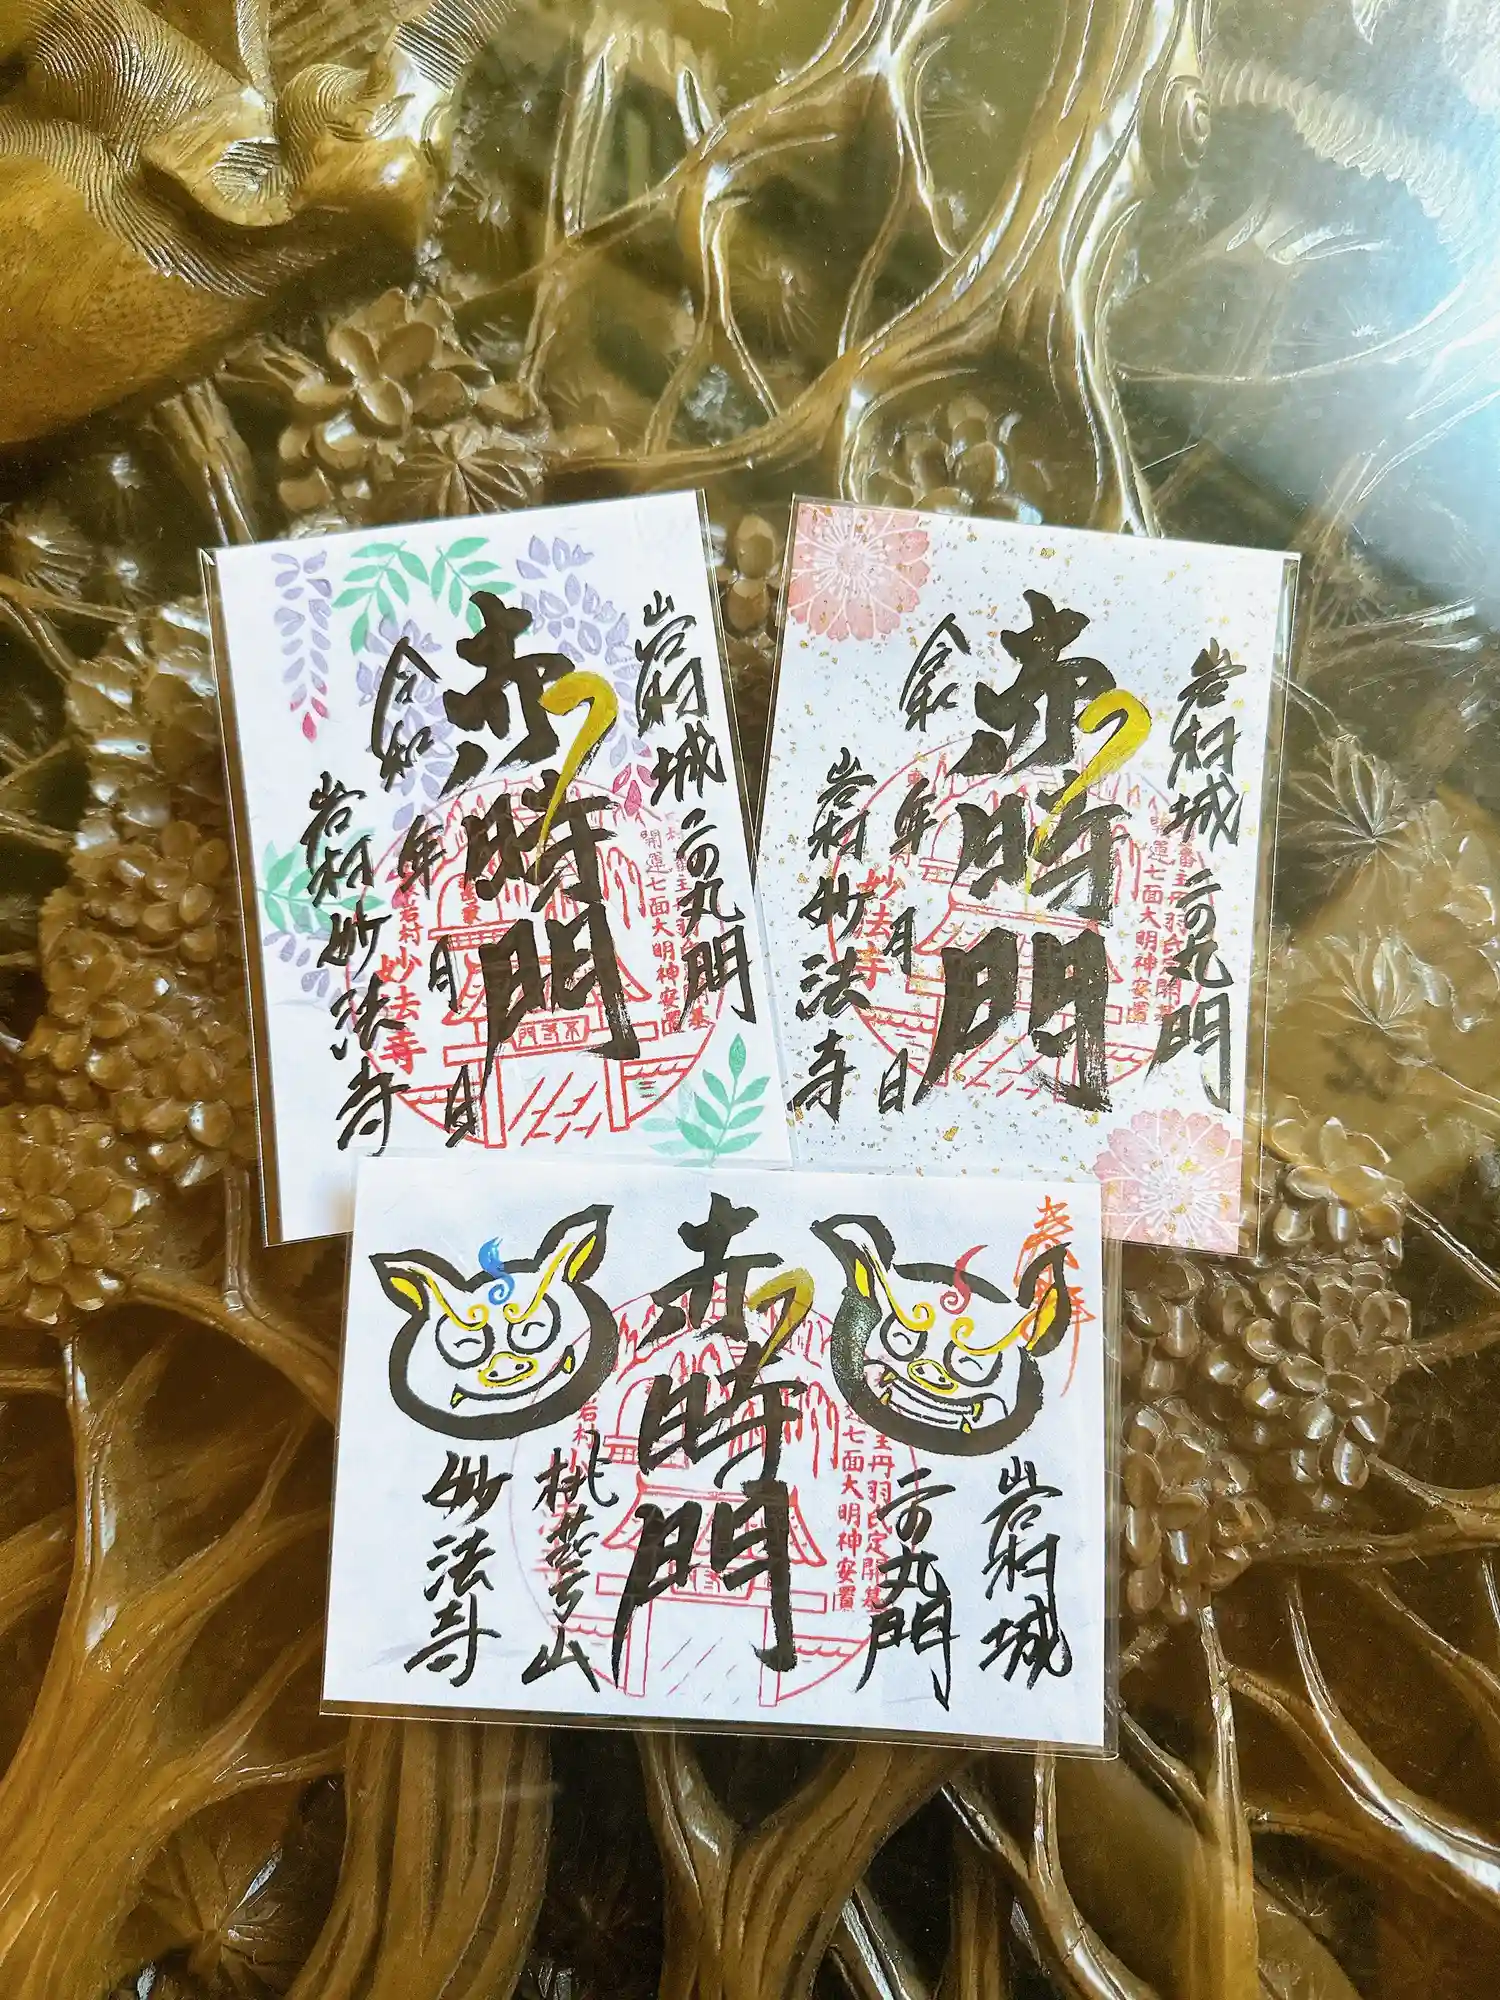 岩村城二の丸門
赤時門
令和 年 月 日
岩村 妙法寺
開運七面大明神安置
岩村
妙法寺
岩村城二の丸門
赤時門
令和 年 月 日
岩村 妙法寺
開運七面大明神安置
妙法寺
奉拝
岩村城
二の丸門
赤時門
妙法寺
主丹羽氏定開基
運七面大明神安置
岩村